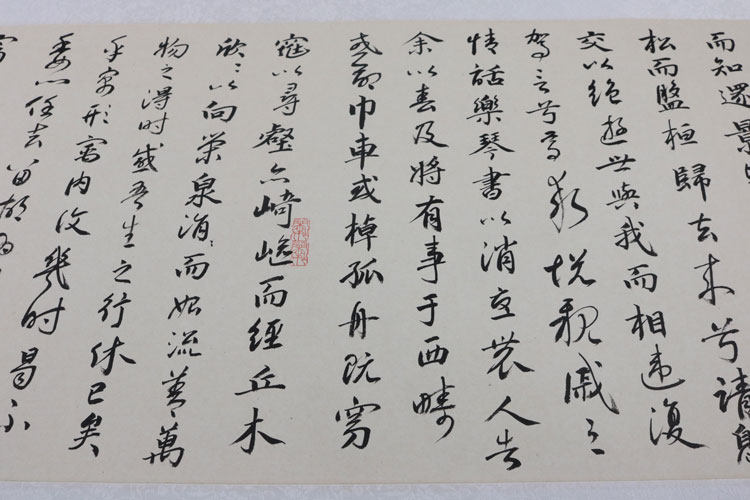 而知還景
松而盤桓歸去來兮請息
交以絕遊世與我而相違復
駕言兮焉求悅親戚之
情話樂琴書以消憂農人告
余以春及將有事于西疇
或命巾車或棹孤舟既窈
窕以尋壑亦崎嶇而經丘木
欣欣以向榮泉涓涓而始流善萬
物之得時感吾生之行休已矣
乎寓形宇內復幾時曷不
委心任去留胡為